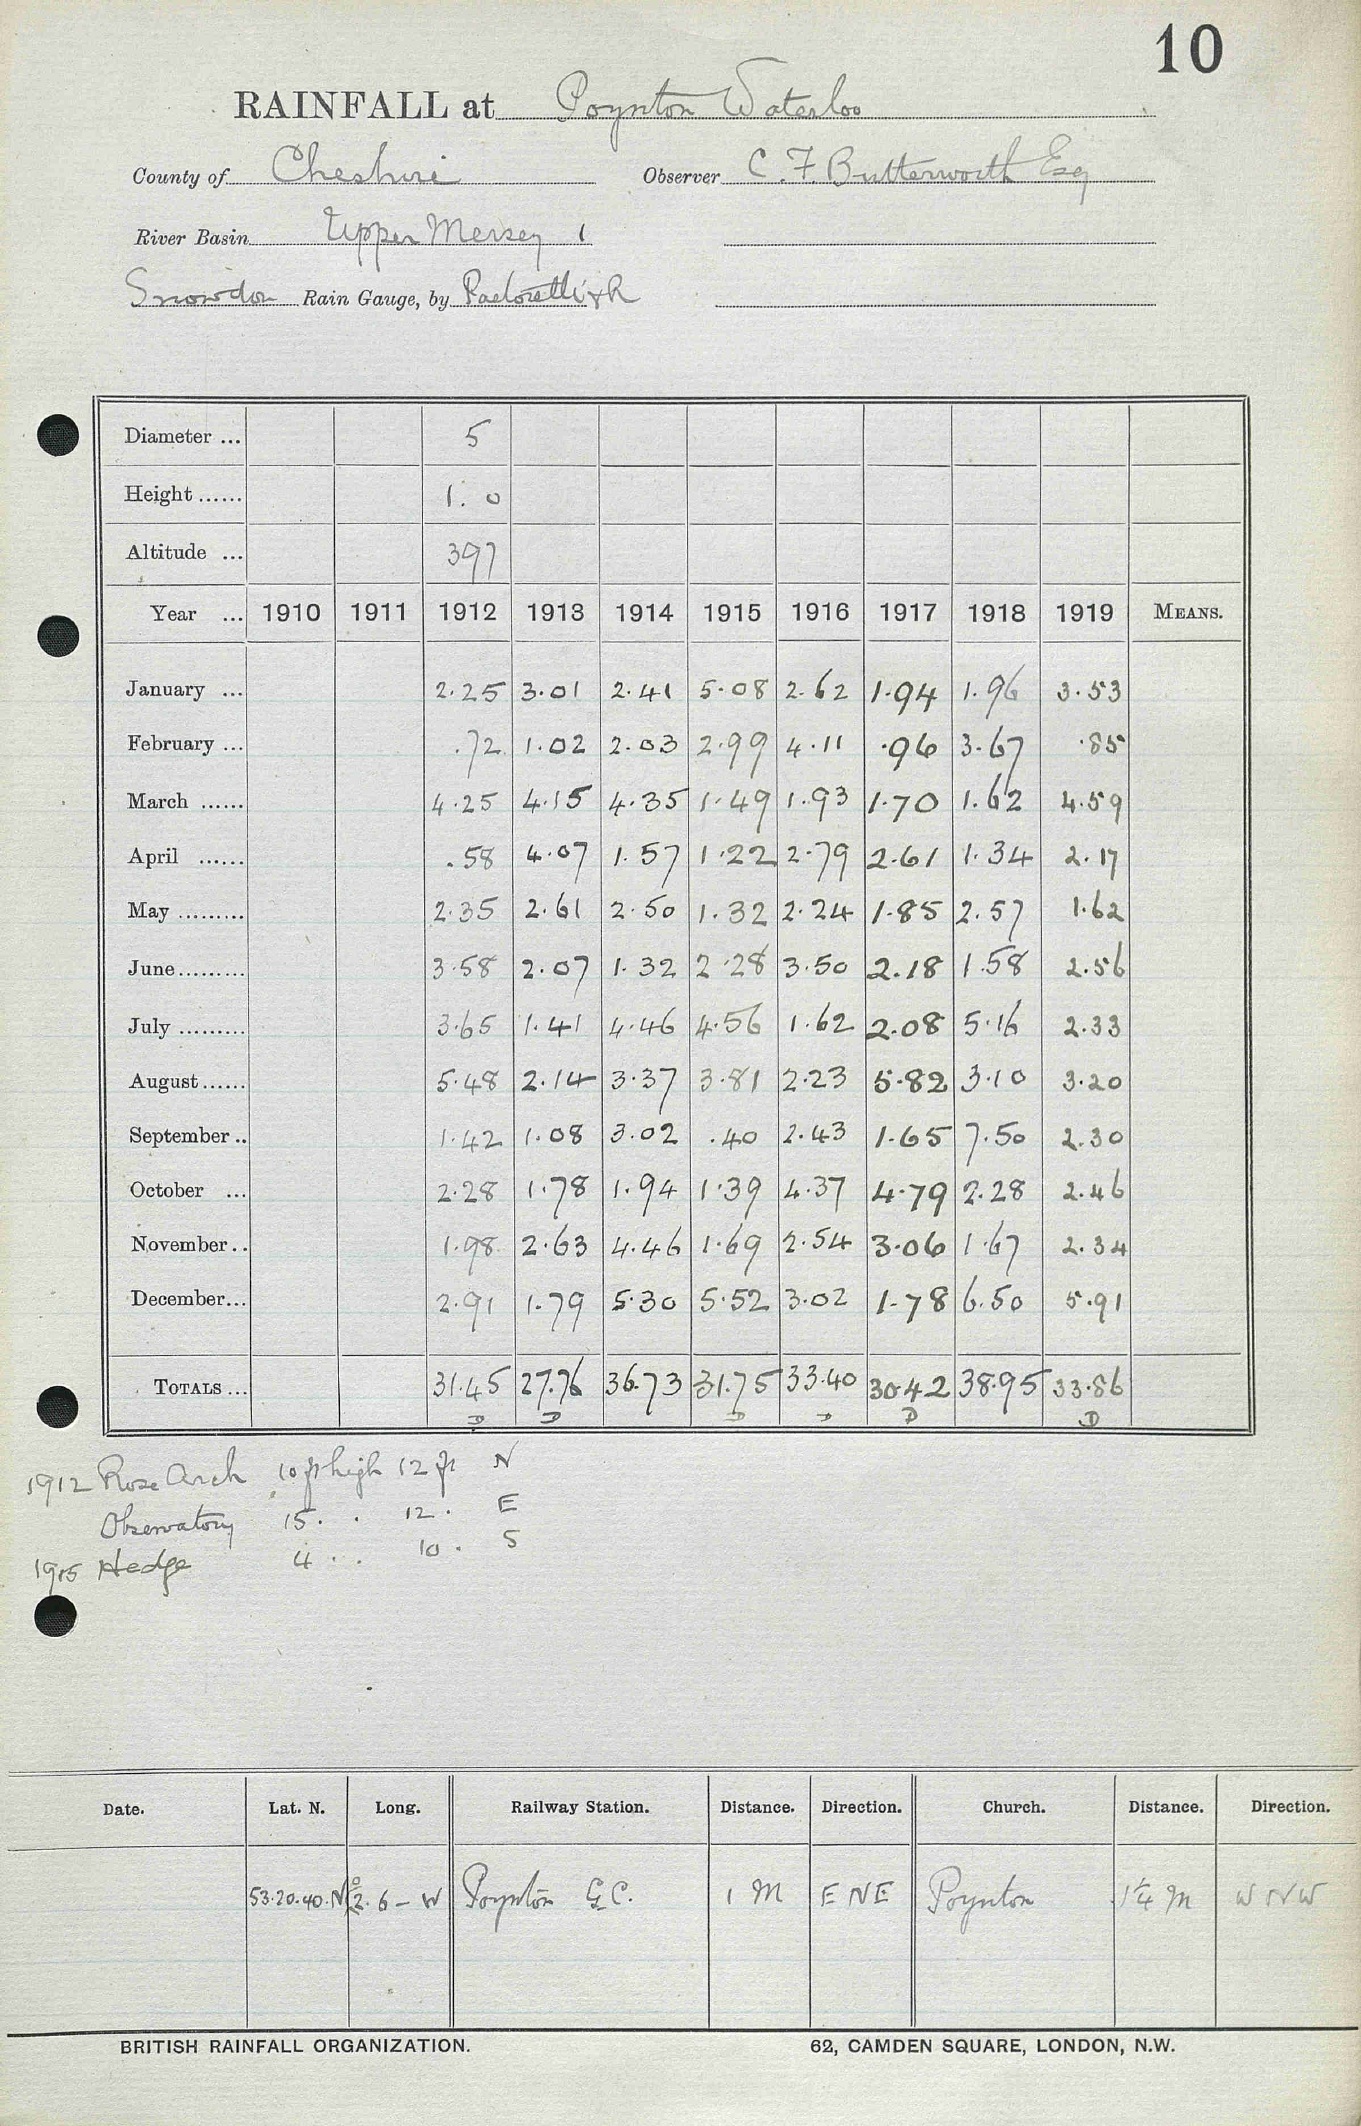 10
RAINFALL at Poynton Waterloo
County of Cheshire Observer C. F. Butterworth Esq
River Basin Upper Mersey 1
Snowdon Rain Gauge, by
Diameter ... 5
Height ...... 1. 0
Altitude ... 397
Year ... 1910 1911 1912 1913 1914 1915 1916 1917 1918 1919 MEANS.
January ... 2.25 3.01 2.41 5.08 2.62 1.94 1.96 3.53
February ... .72 1.02 2.03 2.99 4.11 .96 3.67 .85
March ...... 4.25 4.15 4.35 1.49 1.93 1.70 1.62 4.59
April ...... .58 4.07 1.57 1.22 2.79 2.61 1.34 2.17
May ......... 2.35 2.61 2.50 1.32 2.24 1.85 2.57 1.62
June ......... 3.58 2.07 1.32 2.28 3.50 2.18 1.58 2.56
July ......... 3.65 1.41 4.46 4.56 1.62 2.08 5.16 2.33
August ...... 5.48 2.14 3.37 3.81 2.23 5.82 3.10 3.20
September .. 1.42 1.08 3.02 .40 2.43 1.65 7.50 2.30
October ... 2.28 1.78 1.94 1.39 4.37 4.79 2.28 2.46
November .. 1.98 2.63 4.46 1.69 2.54 3.06 1.67 2.34
December ... 2.91 1.79 5.30 5.52 3.02 1.78 6.50 5.91
TOTALS ... 31.45 27.76 36.73 31.75 33.40 30.42 38.95 33.86
D D D D D D
1912 Rose Arch 10 ft high 12 ft N
Observatory 15 . . 12 . E
1915 Hedge 4 . . 10 . S
Date. Lat. N. Long. Railway Station. Distance. Direction. Church. Distance. Direction.
53.20.40.N 2. 6 – W Poynton G.C. 1 M E NE Poynton 1¼ M W N W
BRITISH RAINFALL ORGANIZATION. 62, CAMDEN SQUARE, LONDON, N.W.